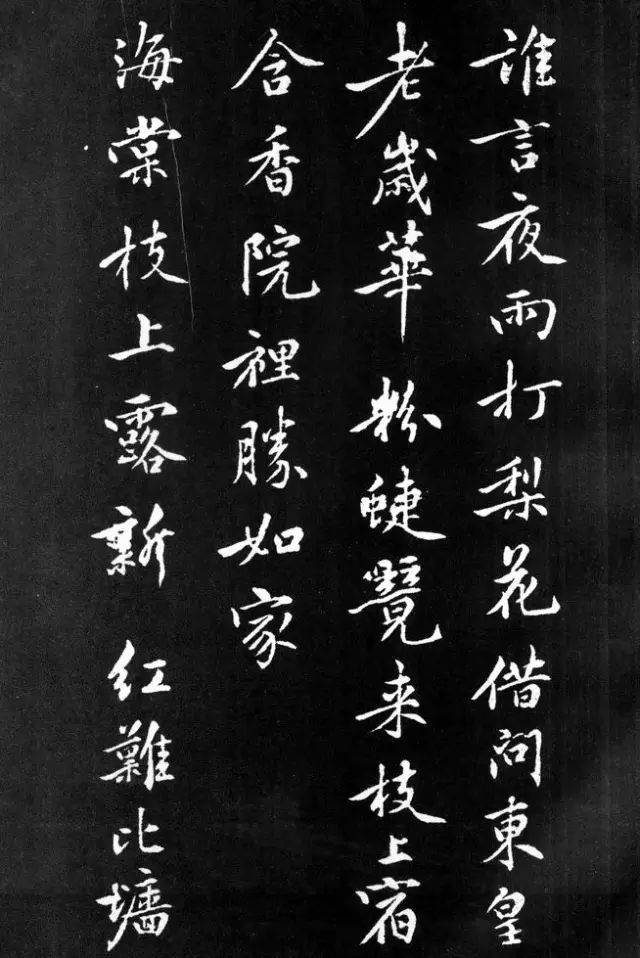 誰言夜雨打梨花借問東皇
老歲華粉蜨覓来枝上宿
含香院裡勝如家
海棠枝上露新紅難比墻